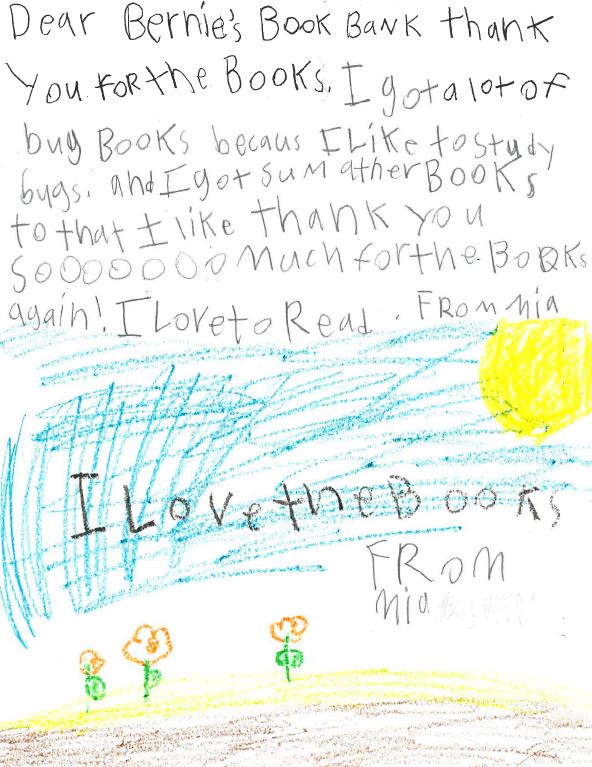 Dear Bernie's Book Bank thank
You FOR the Books. I got a lot of
bug Books becaus I Like to study
bugs. and I got sum ather Books
to that I like thank you
sooooooo much for the Books
again! I Love to Read. From nia
I Love the Books
FRom
nia